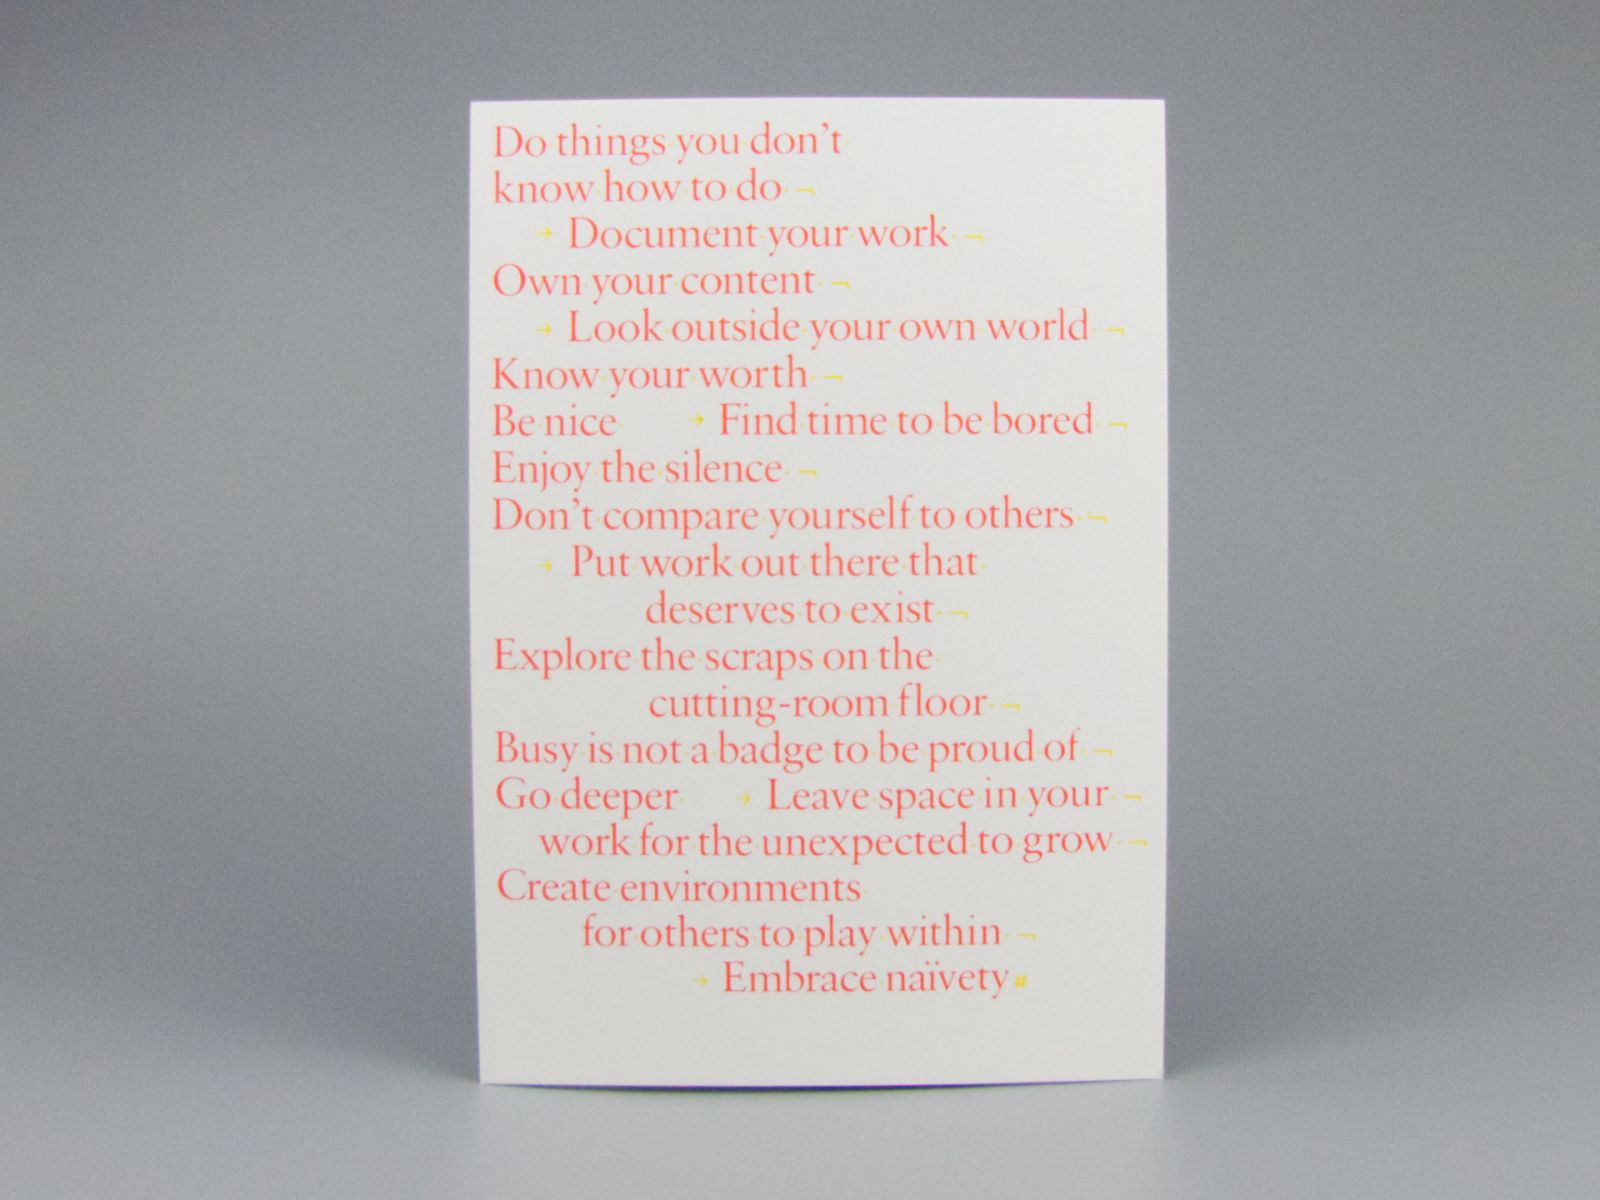 Do things you don’t
know how to do ¬
→ Document your work ¬
Own your content ¬
→ Look outside your own world ¬
Know your worth ¬
Be nice → Find time to be bored ¬
Enjoy the silence ¬
Don’t compare yourself to others ¬
→ Put work out there that
deserves to exist ¬
Explore the scraps on the
cutting-room floor ¬
Busy is not a badge to be proud of ¬
Go deeper → Leave space in your ¬
work for the unexpected to grow ¬
Create environments
for others to play within ¬
→ Embrace naïvety#